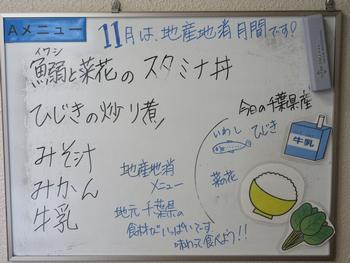 Aメニュー
11月は、地産地消月間です!
イワシ
鰯と菜花のスタミナ丼
ひじきの炒り煮
みそ汁
みかん
牛乳
地産地消
メニュー
地元千葉県の
食材がいっぱいです
味わって食べよう!!
今日の千葉県産
いわし
ひじき
菜の花
牛乳